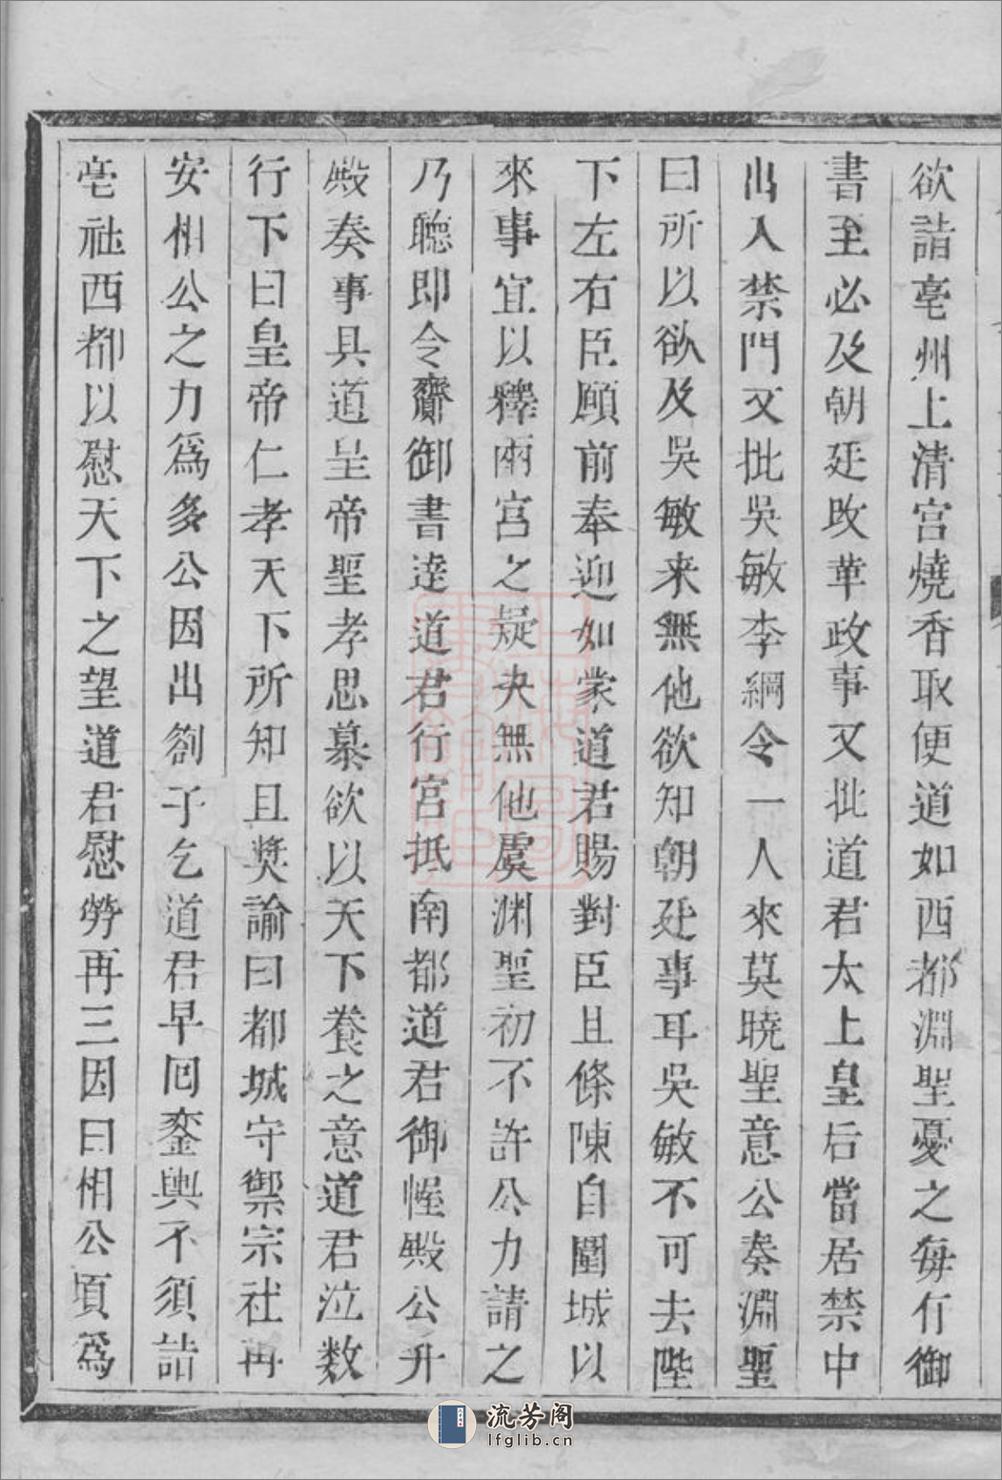 欲詣亳州上清宫燒香取便道如西都淵聖憂之每有御
書至必及朝廷改革政事又批道君太上皇后當居禁中
出入禁門又批吳敏李綱令一人來莫曉聖意公奏淵聖
曰所以欲及吳敏来無他欲知朝廷事耳吳敏不可去陛
下左右臣願前奉迎如蒙道君賜對臣且條陳自圍城以
來事宜以釋兩宫之疑决無他虞渊聖初不許公力請之
乃聽即令齎御書達道君行宫抵南都道君御幄殿公升
殿奏事具道皇帝聖孝思慕欲以天下養之意道君泣数
行下曰皇帝仁孝天下所知且奬諭曰都城守禦宗社再
安相公之力爲多公因出劄子乞道君早回鑾輿不須詣
亳社西都以慰天下之望道君慰勞再三因曰相公頃爲
流芳阁
lfglib.cn